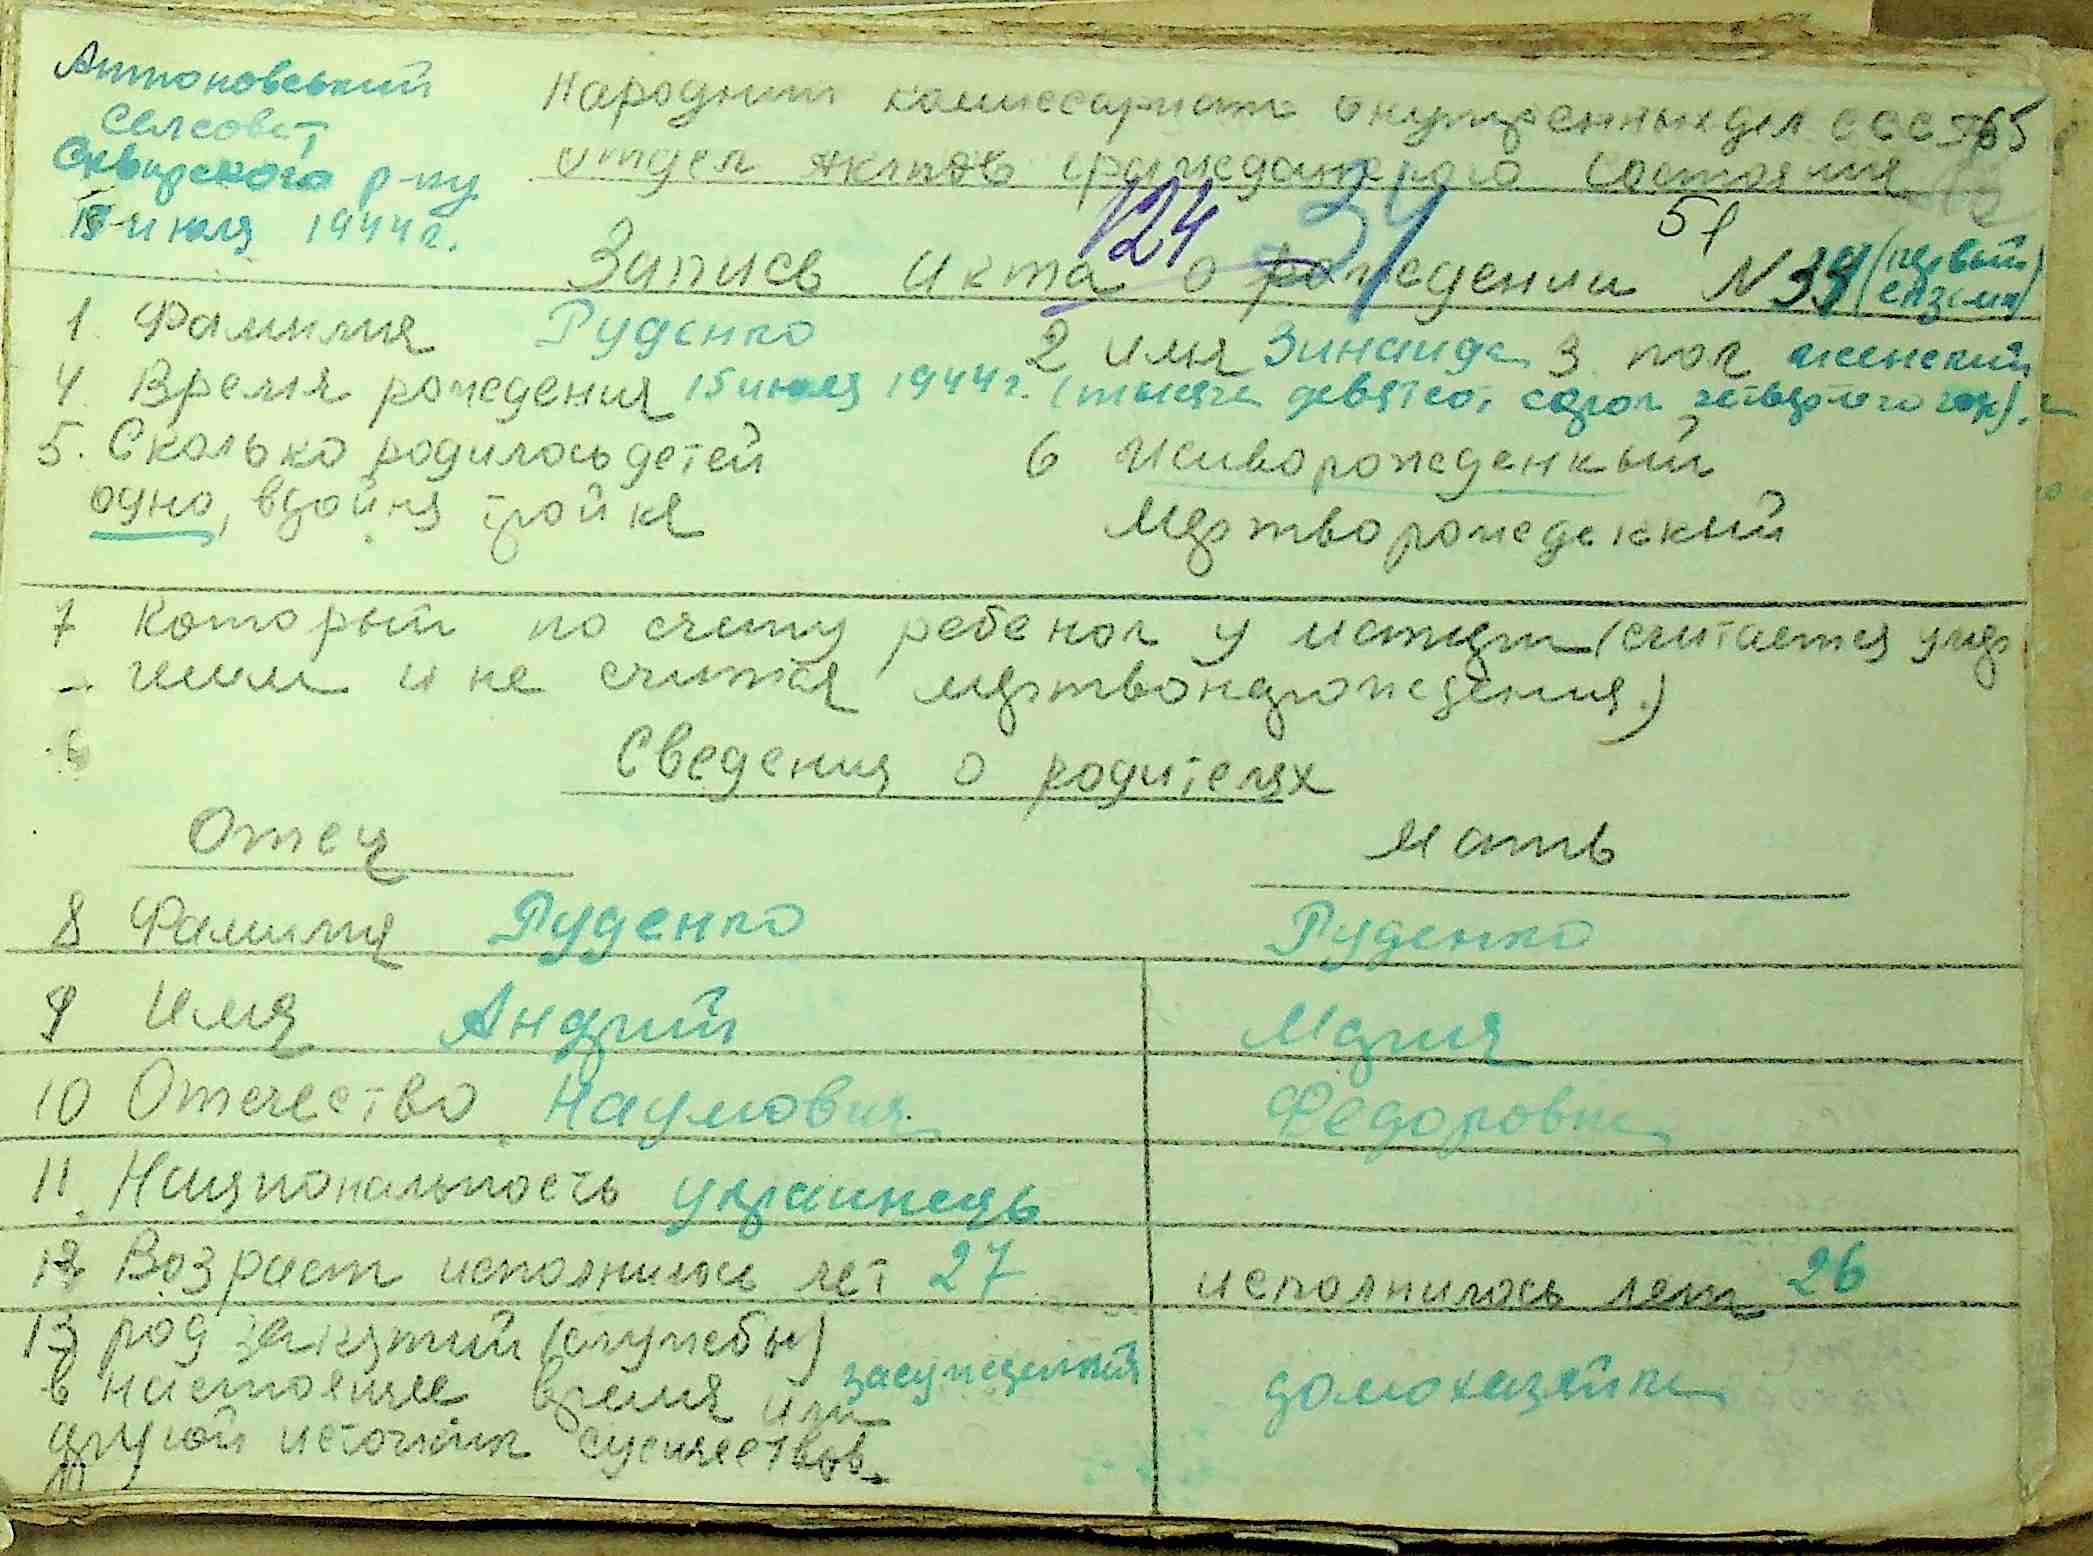 Антоновський
Селсовет
Сквирского р-ну
15 июля 1944 г.
Народний комиссариат внутренных дел СССР
65
Отдел актов гражданского состояния
124
34
51
Запись акта о рождении N 34 (первый
екземп)
1. Фамилия Руденко 2 имя Зинаида 3. пол женский
4. Время рождения 15 июля 1944 г. (тысяча девятсот сорок четвертого года).
5. Сколько родилось детей 6 Живорожденный
одно, двойня тройня Мертворожденный
7 Который по счету ребенок у матери (считается умер
шим и не считая мертворождения.)
Сведения о родителях
Отец Мать
8 Фамилия Руденко Руденко
9 Имя Андрий Мария
10 Отчество Наумович Федоровна
11. Национальность украинець
12 Возраст исполнилось лет 27 исполнилось лет 26
13 род занятий (службы)
в настоящее время или домохазяйка
другой источник существов.